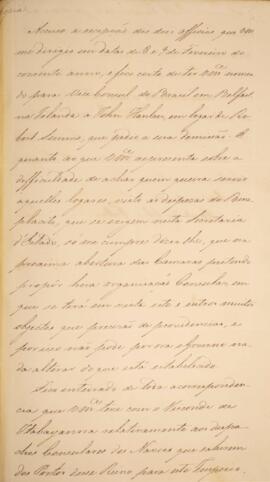 Accuso a recepção dos dois officios que Vm.ce
me dirigio em datas de 8 e 9 de Fevereiro do
corrente anno, e fico certo de ter Vm.ce nomea
do para Vice Consul do Brasil em Belfast
na Irlanda a John Hanlen, em logar de Ro
bert, que pedio a sua demissão. E
quanto ao que Vm.ce accrescenta sobre a
difficuldade de achar quem queira servir
aquelles logares, visto as despezas do Bene
placito, que se exigem nesta Secretaria
d'Estado, só me cumpre dizer-lhe, que na
proxima abertura das Camaras pretendo
propôr huma organização Consular, em
que se terá em vista este e outros muitos
objectos que precisão de providencias, e
por isso não póde por ora o Governo na
da alterar do que está estabelecido.
Fico inteirado de toda a correspondên
cia que Vm.ce teve com o Visconde de
Itabayanna relativamente aos despa
chos Consulares dos Navios que sahirem
dos Portos desse Reino para este Imperio.